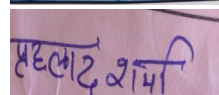 प्रहलाद शर्मा